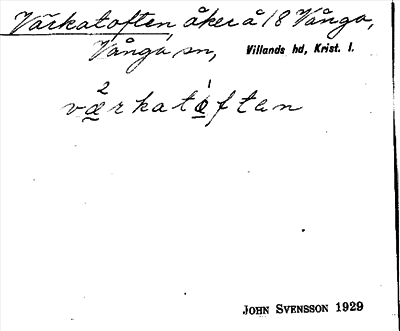 Värkatoften åker å 18 Vånga,
Vånga sn, Villands hd, Krist. l.
v²ærkat¹åftən
JOHN SVENSSON 1929